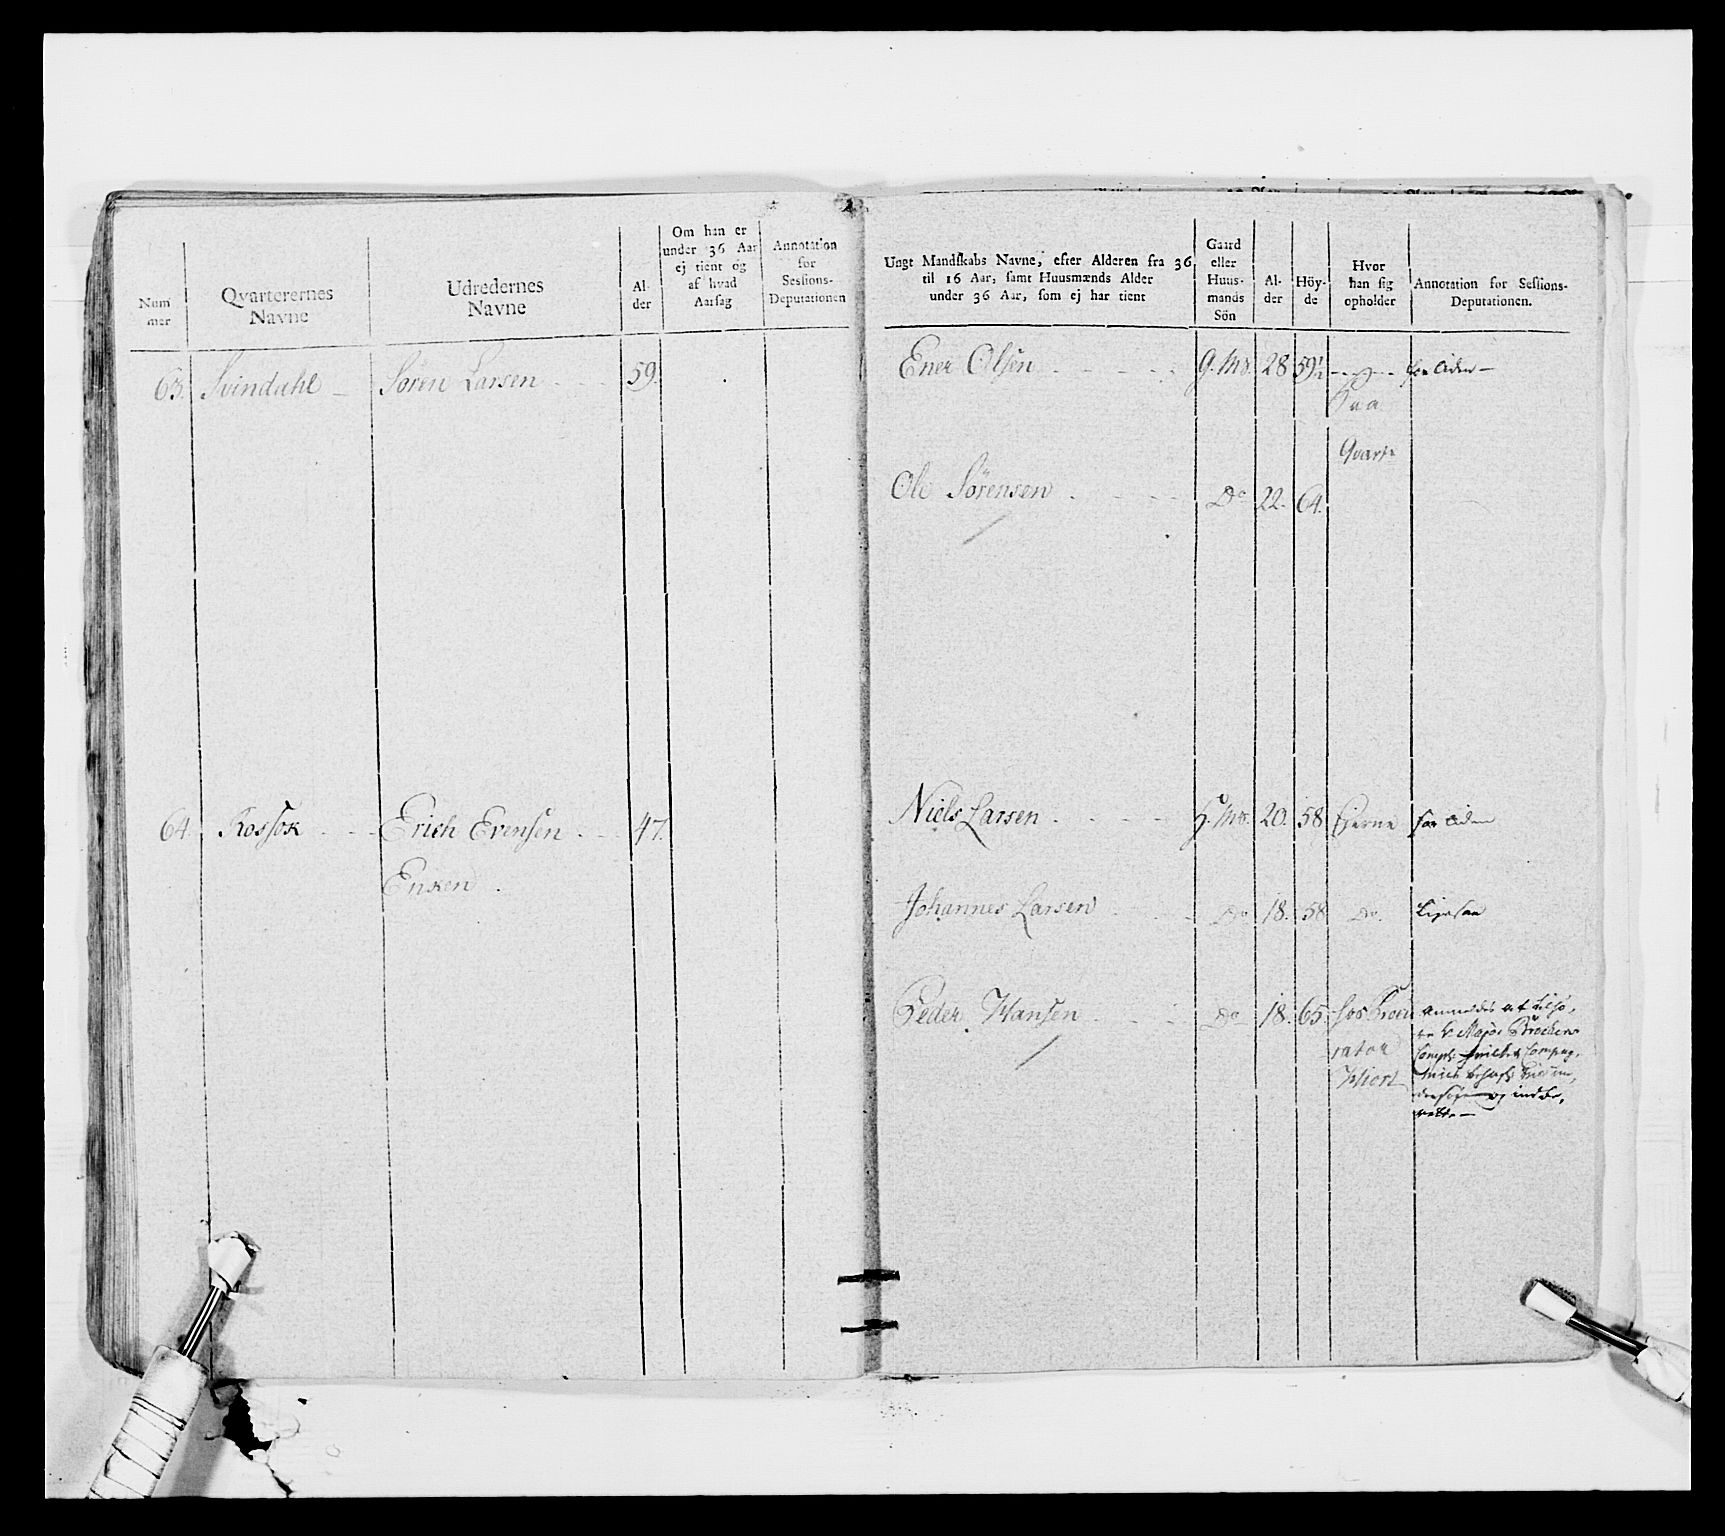 Num
mer
Qvarterernes
Navne
Udredernes
Navne
Al-
der
Om han er
under 36 Aar
ej tient og
af hvad
Aarsag
Annotation
for
Sessions-
Deputationen
63. Svindahl Søren Larsen 59.
64. Rossok Erich Evensen 47.
Enken
Ungt Mandskabs Navne, efter Alderen fra 36
til 16 Aar, samt Huusmænds Alder
under 36 Aar, som ej har tient
Gaard
eller
Huus-
mands
Sön
Al-
der
Höy-
de
Hvor
han sig
opholder
Annotation for Sessions-
Deputationen.
Ener Olsen 28 59½
Paa
Qvart
Ole Sørensen Do 22. 64.
Niels Larsen 20. 58 hierne for liden
Johannes Larsen Do 18. 58 Do Ligesaa
Peder Hansen Do 18. 65.
Hiort